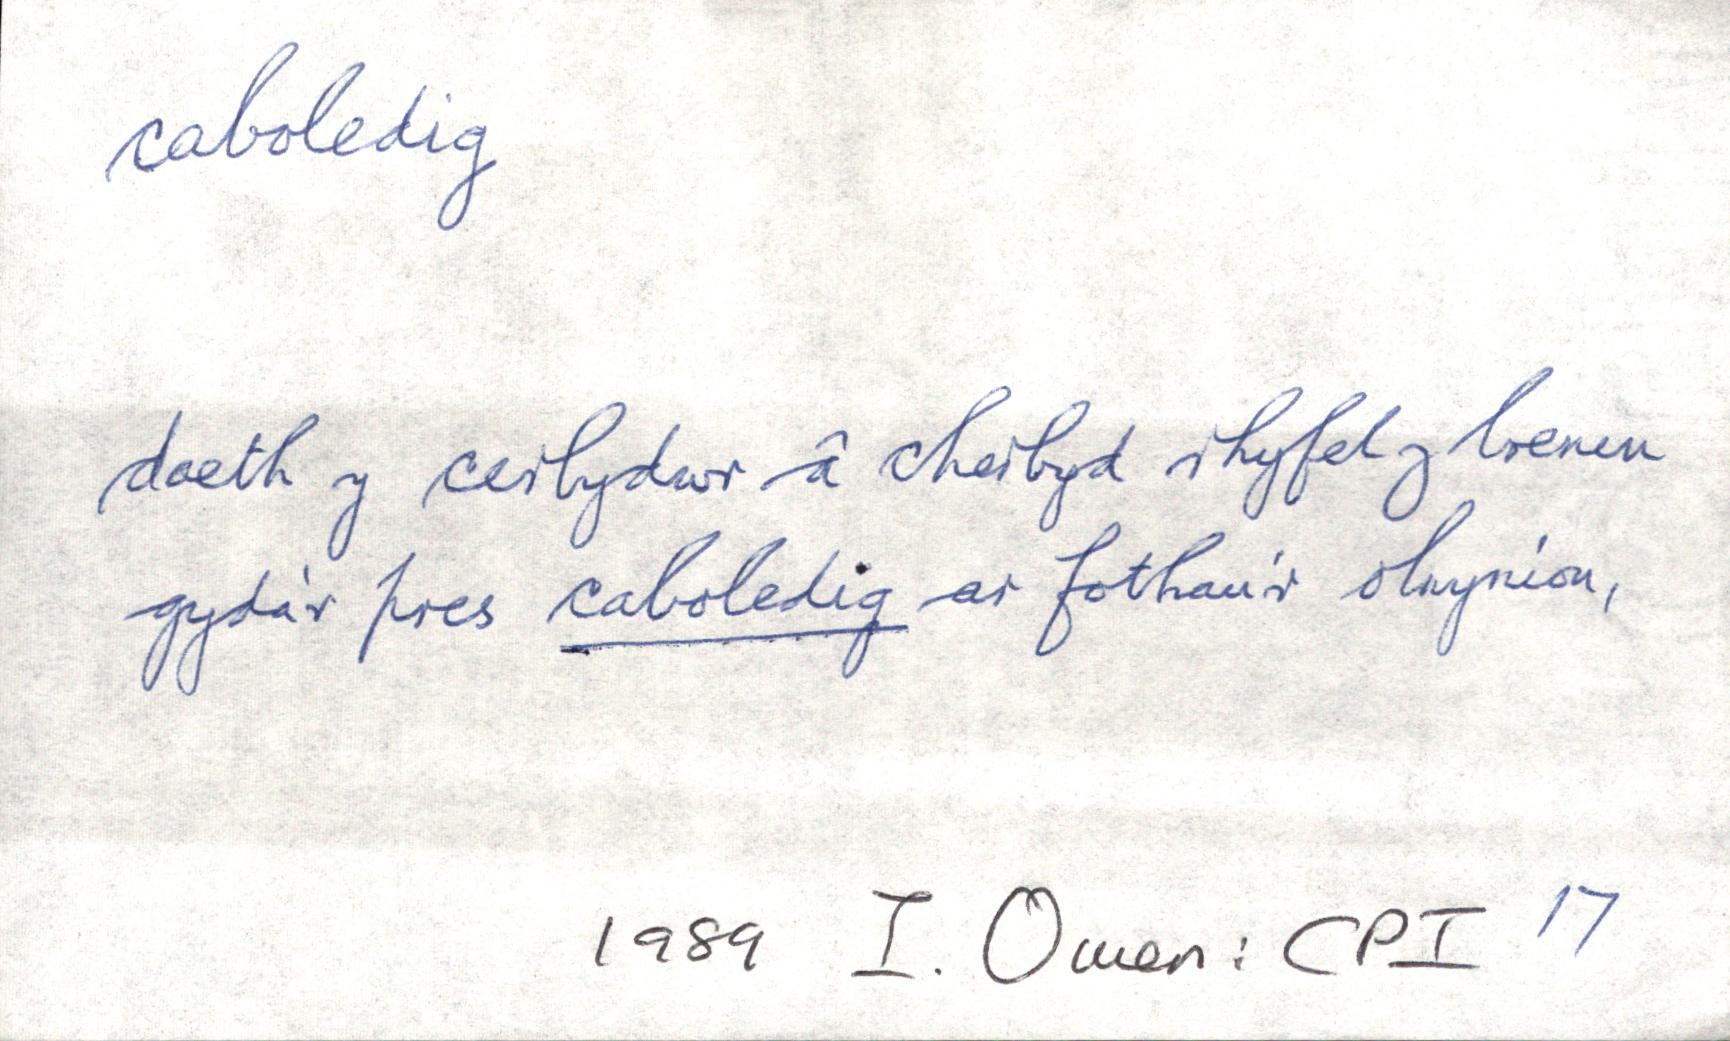 caboledig
daeth y cerbydwr â cherbyd rhyfel y brenin
gyda'r pres caboledig ar fothau'r olwynion,
1989 I. Owen: CPI 17